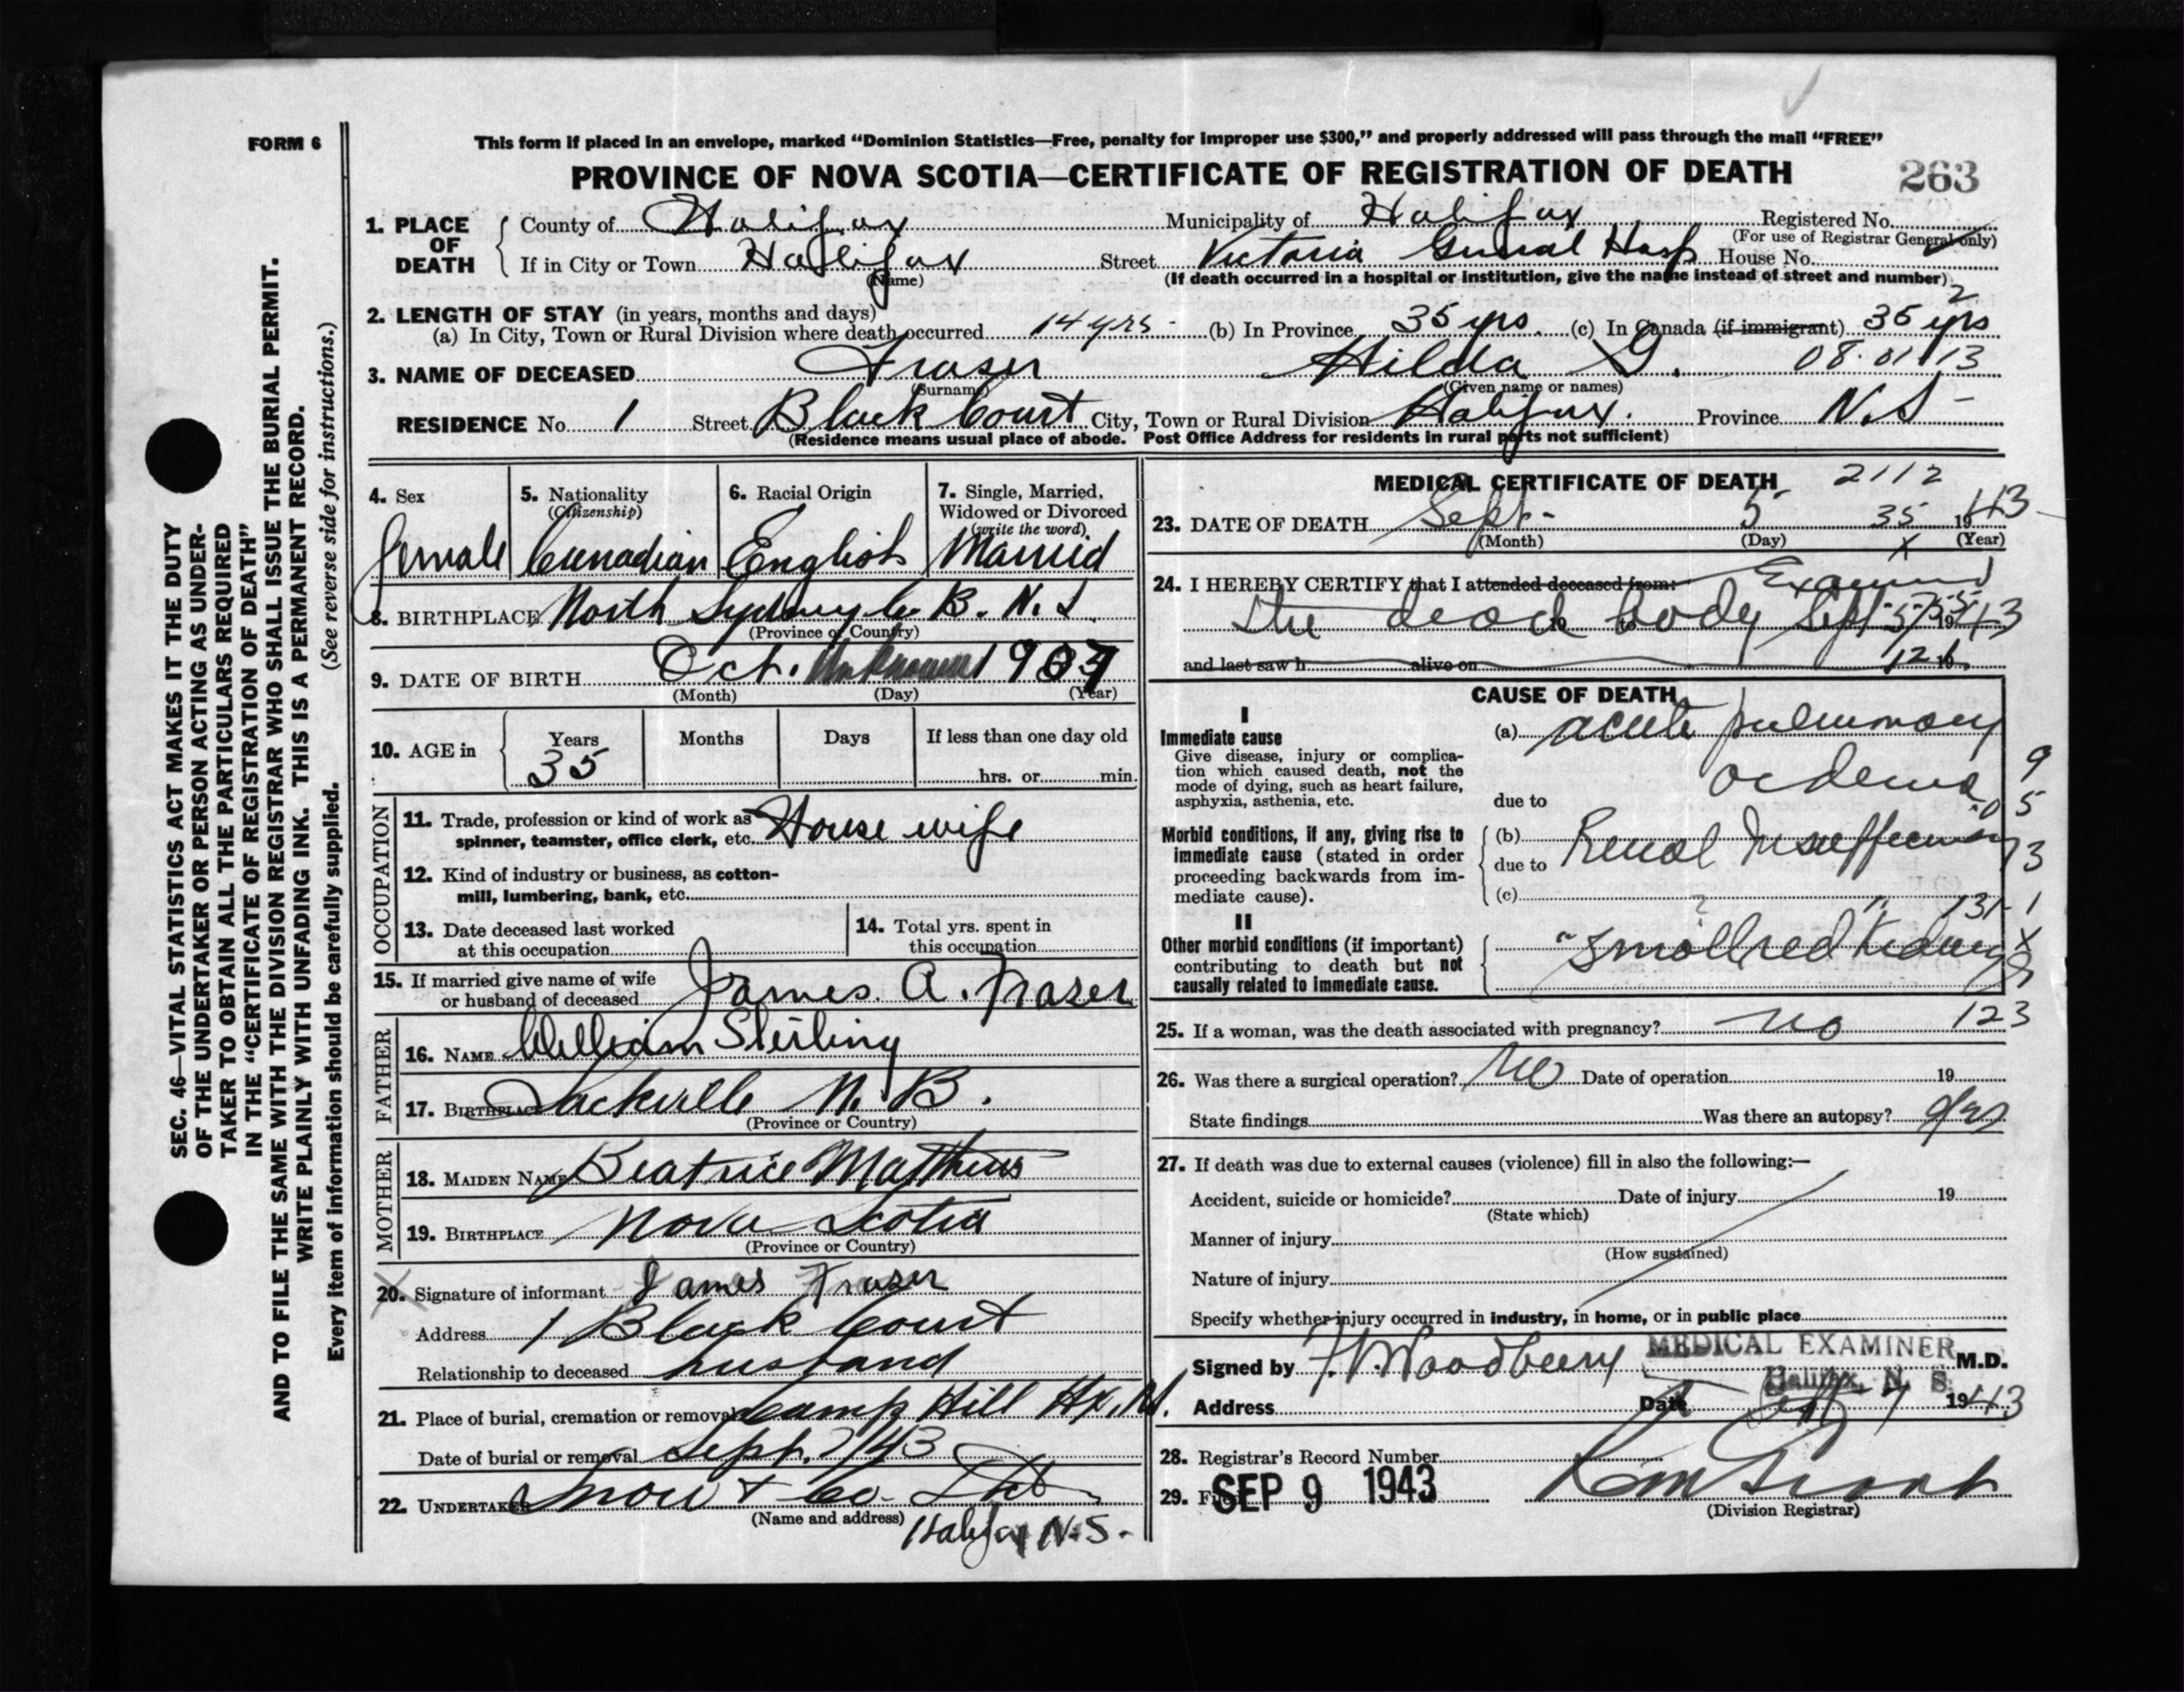 FORM 6
This form if placed in an envelope, marked “Dominion Statistics—Free, penalty for improper use $300,” and properly addressed will pass through the mail “FREE”
PROVINCE OF NOVA SCOTIA—CERTIFICATE OF REGISTRATION OF DEATH 263
1. PLACE OF DEATH
County of Halifax Municipality of Halifax Registered No.
(For use of Registrar General only)
If in City or Town Halifax Street Victoria General Hosp House No.
(Name) (If death occurred in a hospital or institution, give the name instead of street and number)
2. LENGTH OF STAY (in years, months and days) 2
(a) In City, Town or Rural Division where death occurred 14 yrs - (b) In Province 35 yrs. (c) In Canada (if immigrant) 35 yrs
3. NAME OF DECEASED Fraser Hilda G. 08.01113
(Surname) (Given name or names)
RESIDENCE No. 1 Street Black Court City, Town or Rural Division Halifax. Province N.S-
(Residence means usual place of abode. Post Office Address for residents in rural parts not sufficient)
4. Sex
female
5. Nationality
(Citizenship)
Canadian
6. Racial Origin
English
7. Single, Married,
Widowed or Divorced
(write the word)
Married
8. BIRTHPLACE North Sydney C. B. N.S.
(Province or Country)
9. DATE OF BIRTH Oct. Unknown
(Month) (Day) (Year)
10. AGE in
Years
35
Months
Days
If less than one day old
hrs. or min.
OCCUPATION
11. Trade, profession or kind of work as
spinner, teamster, office clerk, etc. House wife
12. Kind of industry or business, as cotton-
mill, lumbering, bank, etc.
13. Date deceased last worked
at this occupation
14. Total yrs. spent in
this occupation
15. If married give name of wife
or husband of deceased James. A. Fraser
FATHER
16. NAME William Sterling
17. BIRTHPLACE Sackville N.B.
(Province or Country)
MOTHER
18. MAIDEN NAME Beatrice Matthews
19. BIRTHPLACE Nova Scotia
(Province or Country)
20. Signature of informant James Fraser
Address 1 Black Court
Relationship to deceased husband
21. Place of burial, cremation or removal Camp Hill Hx, N.
Date of burial or removal Sept. 7/43
22. UNDERTAKER Snow & Co. Ltd
(Name and address) Halifax N.S.-
MEDICAL CERTIFICATE OF DEATH 2112
23. DATE OF DEATH Sept- 5 35 1943
(Month) (Day) X (Year)
24. I HEREBY CERTIFY that I attended deceased from: Examined
the dead body Sept 5 1943
and last saw h alive on
CAUSE OF DEATH
I
Immediate cause
Give disease, injury or complica-
tion which caused death, not the
mode of dying, such as heart failure,
asphyxia, asthenia, etc.
(a) acute pulmonary
oedema
due to
9
5
Morbid conditions, if any, giving rise to
immediate cause (stated in order
proceeding backwards from im-
mediate cause).
(b) Renal Insufficiency 3
due to
(c)
131-1
II
Other morbid conditions (if important)
contributing to death but not
causally related to immediate cause.
"small red kidney X
25. If a woman, was the death associated with pregnancy? no 123
26. Was there a surgical operation? no Date of operation 19
State findings Was there an autopsy? yes
27. If death was due to external causes (violence) fill in also the following:—
Accident, suicide or homicide? Date of injury 19
(State which)
Manner of injury
(How sustained)
Nature of injury
Specify whether injury occurred in industry, in home, or in public place
MEDICAL EXAMINER
Signed by Woodbury M.D.
Halifax, N. S.
Address Date Sept 7 1943
28. Registrar's Record Number
29. Filed SEP 9 1943
(Division Registrar)
SEC. 46—VITAL STATISTICS ACT MAKES IT THE DUTY
OF THE UNDERTAKER OR PERSON ACTING AS UNDER-
TAKER TO OBTAIN ALL THE PARTICULARS REQUIRED
IN THE “CERTIFICATE OF REGISTRATION OF DEATH”
AND TO FILE THE SAME WITH THE DIVISION REGISTRAR WHO SHALL ISSUE THE BURIAL PERMIT.
WRITE PLAINLY WITH UNFADING INK. THIS IS A PERMANENT RECORD.
Every item of information should be carefully supplied. (See reverse side for instructions.)